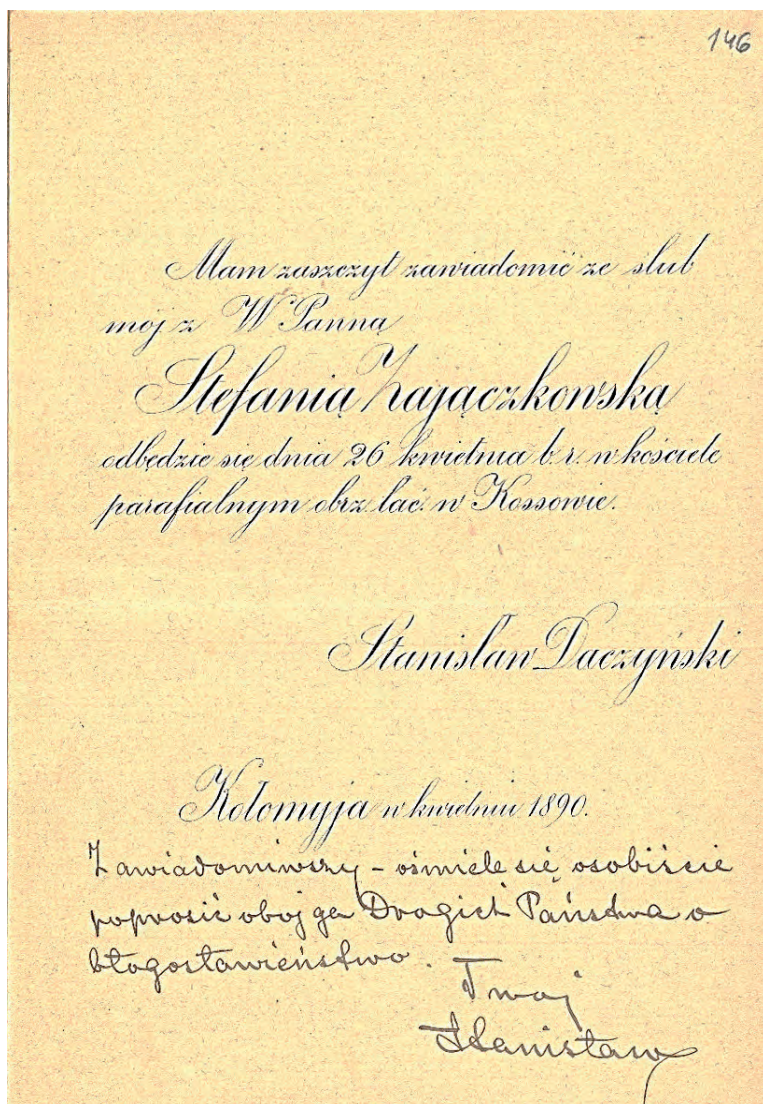 146
Mam zaszczyt zawiadomić że ślub
mój z W Panną
Stefanią Zajączkowską
odbędzie się dnia 26 kwietnia b. r. w kościele
parafialnym obrz. łać. w Kossowie.
Stanisław Daczyński
Kołomyja w kwietniu 1890.
Zawiadomiwszy – ośmielę się osobiście
poprosić obojga Drogich Państwa o
błogosławieństwo.
Twój
Stanisław